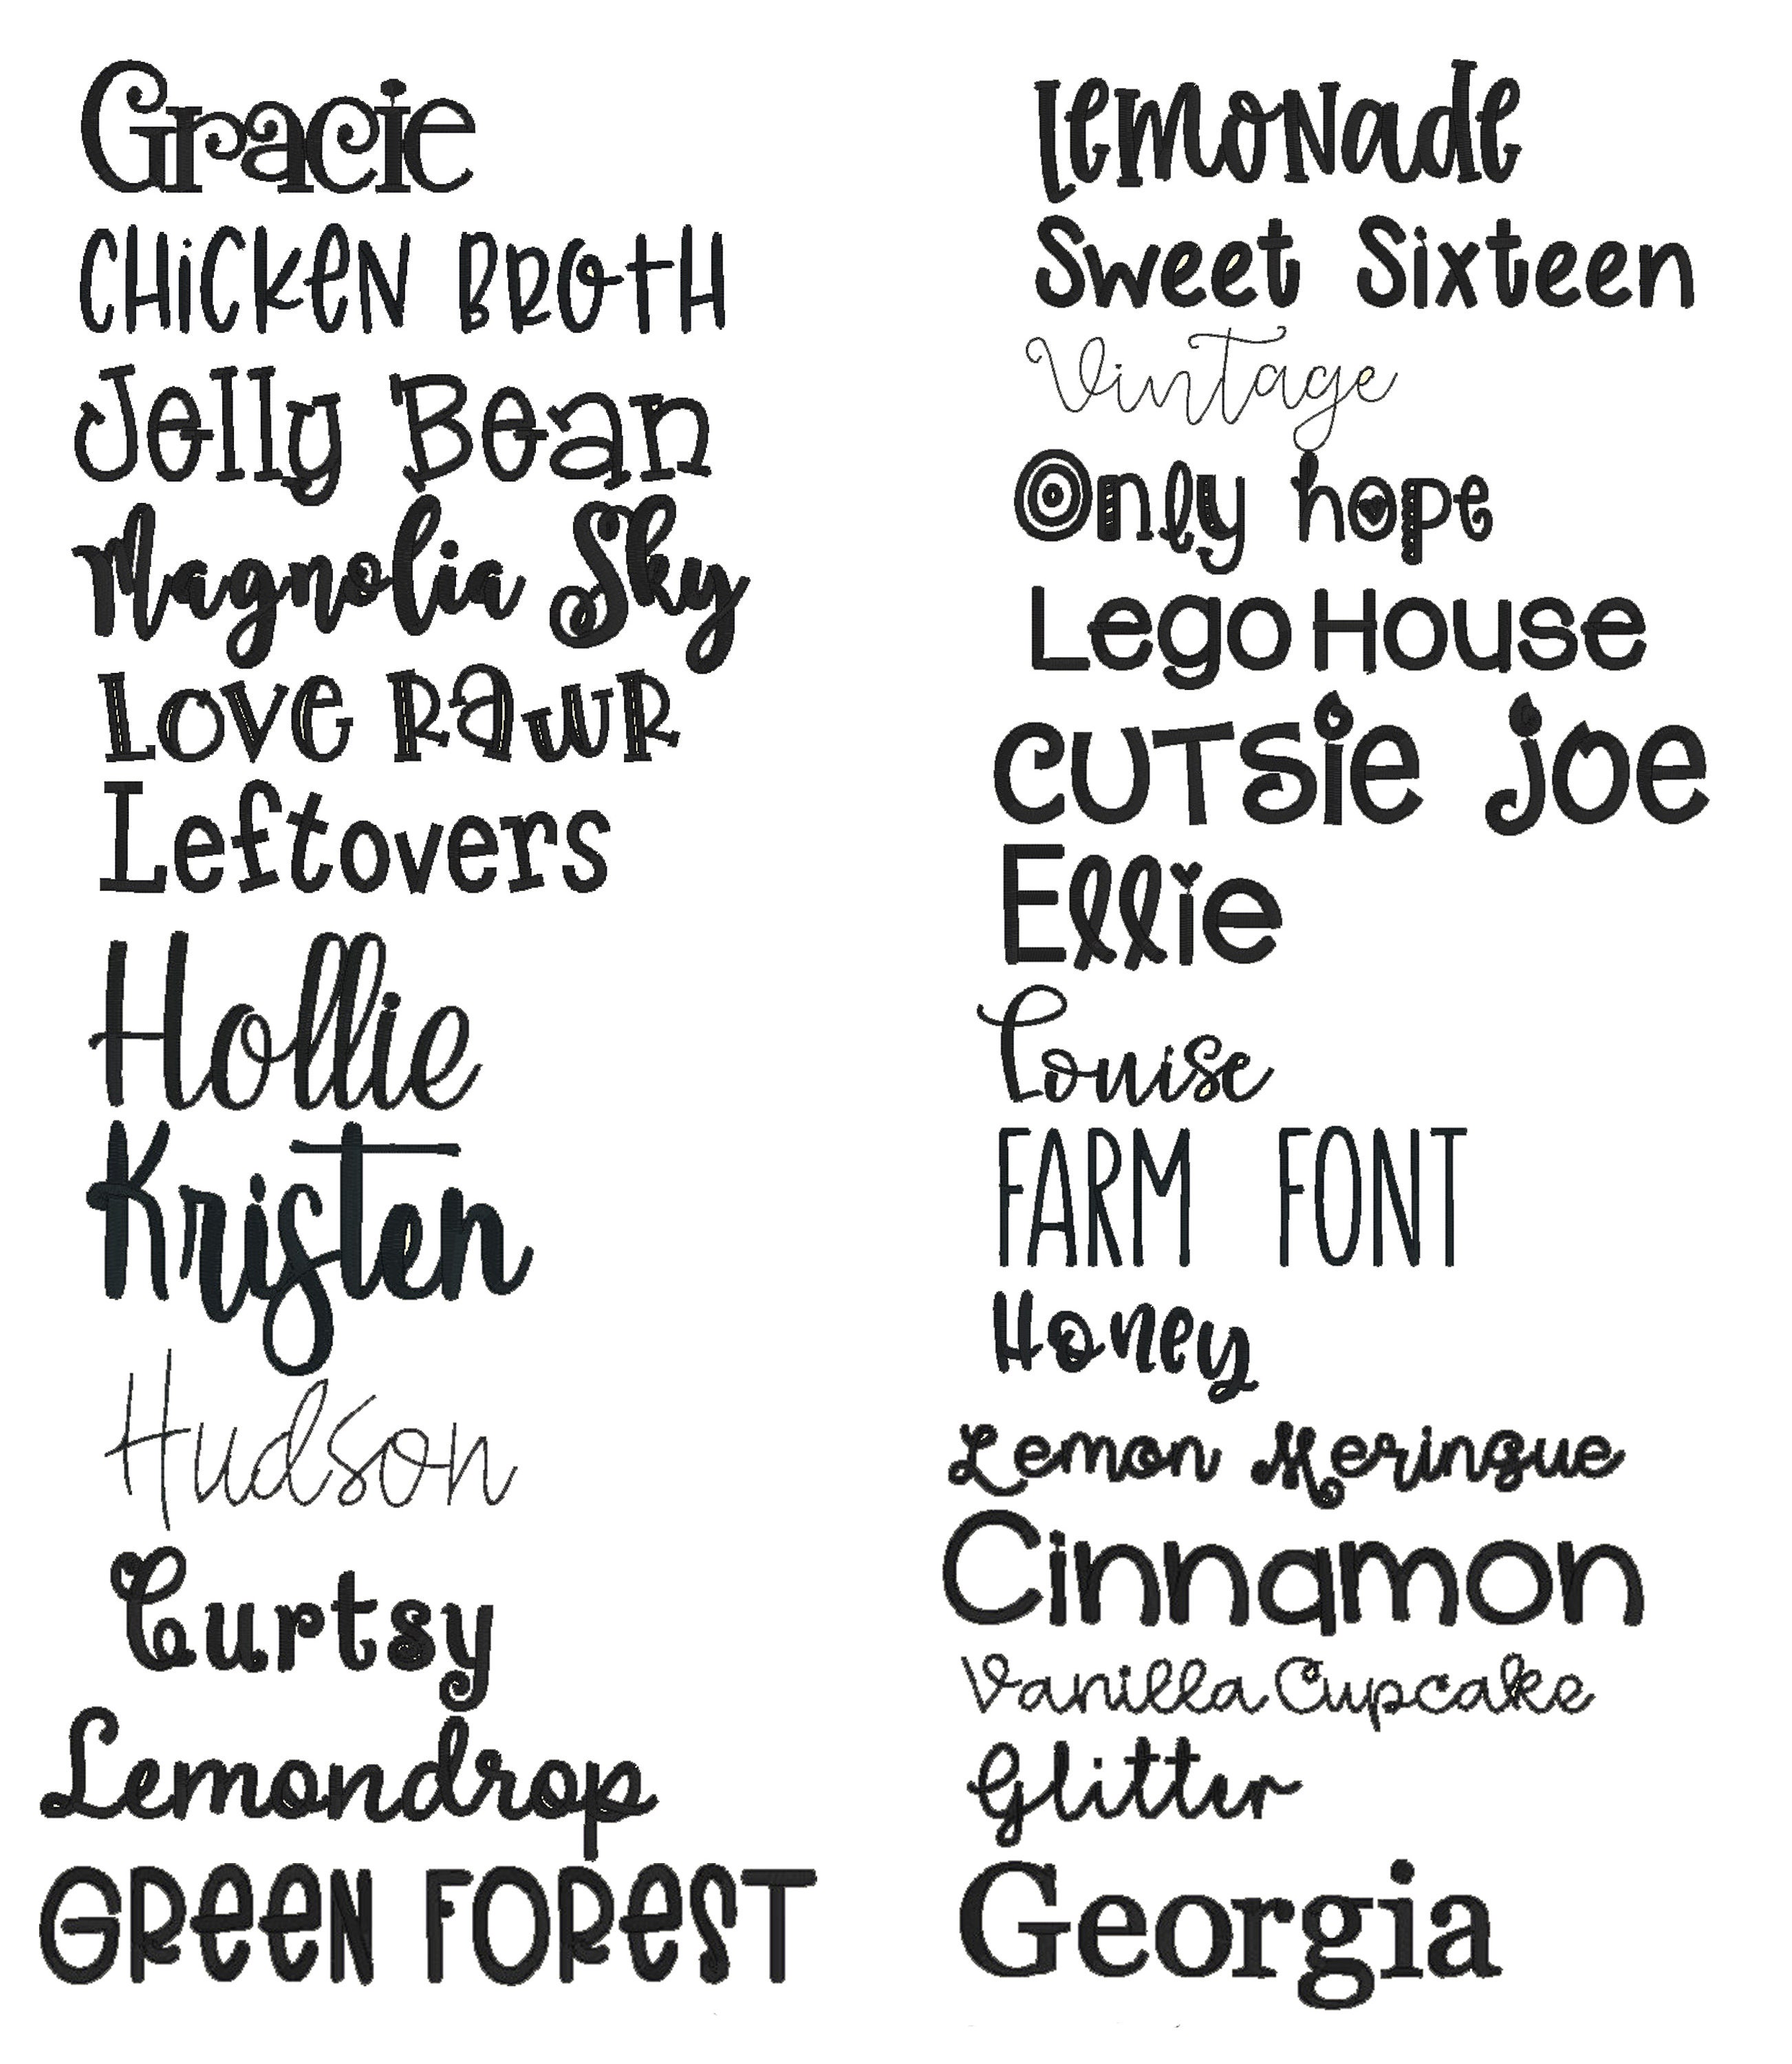 Gracie
CHiCKeN BROtH
Jelly Bean
Magnolia Sky
Love RawR
Leftovers
Hollie
Kristen
Hudson
Curtsy
Lemondrop
GReeN FOReST
LeMoNade
Sweet Sixteen
Vintage
Only hope
Lego House
CUTSie joe
Ellie
Louise
FARM FONT
Honey
Lemon Meringue
Cinnamon
Vanilla Cupcake
Glitter
Georgia